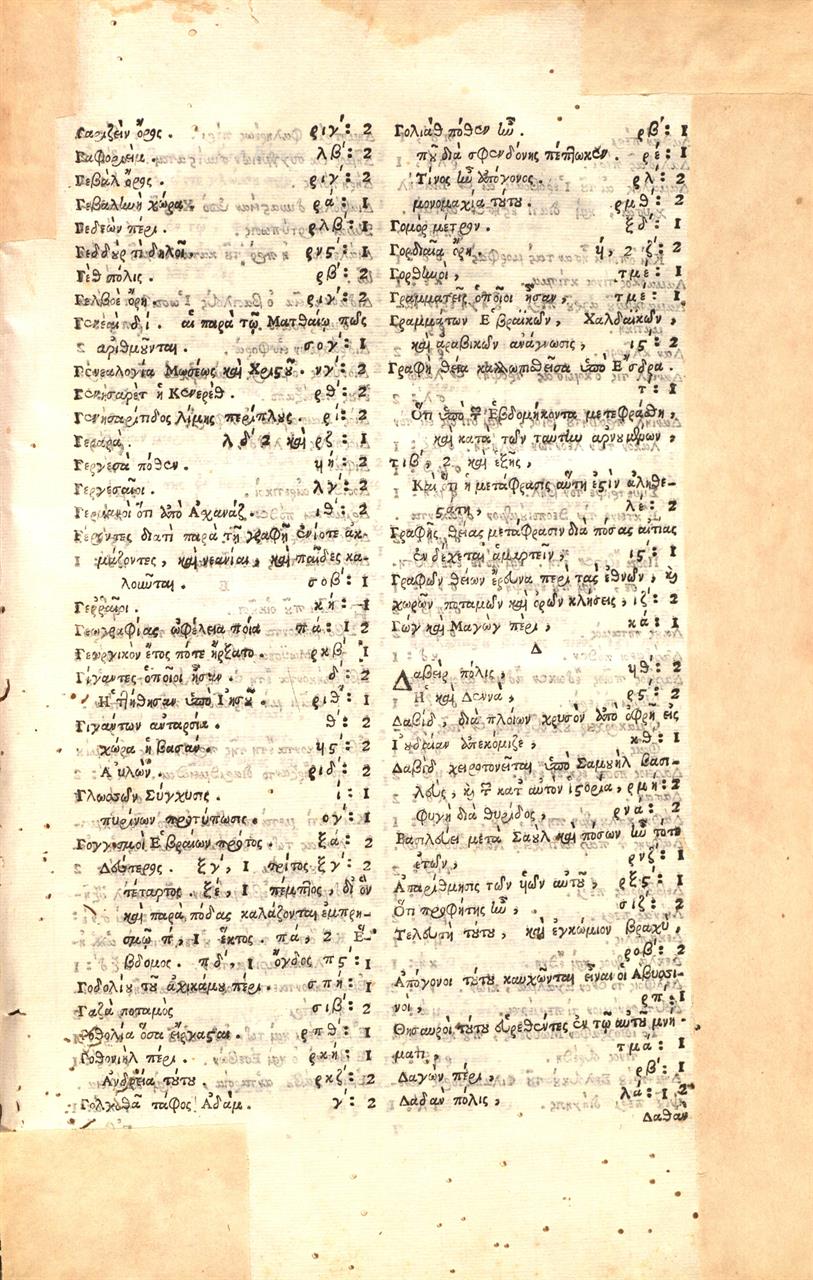 Γαριζεὶν ὄρος. ριγ΄: 2
Γαφορεὶμ. λβ΄: 2
Γεβὰλ ὄρος. ριγ΄: 2
Γεβαλωὴ χώρα. ρά: 1
Γεδεὼν πέρι. ρλβ΄: 1
Γεδδοὺρ τὶ δηλοῖ. ρνς΄: 1
Γὲθ πόλις. ρβ΄: 2
Γελβοὲ ὄρη. ριγ΄: 2
Γενεαὶ δί. αἱ παρὰ τῷ Ματθαίῳ πῶς
ἀριθμοῦνται. σογ΄: 1
Γενεαλογία Μωσέως καὶ Χριστοῦ. νγ΄: 2
Γενησαρὲτ ἡ Κενερέθ. ρθ΄: 2
Γενησαρίτιδος λίμνης περίπλους. ρί: 2
Γέραρα. λδ΄ 2 καὶ ρζ: 1
Γεργεσὰ πόθεν. ϟή: 2
Γεργεσαῖοι. λγ΄: 2
Γερμανοὶ ὅτι ἀπὸ Ἀχανάζ. ιθ΄: 2
Γέροντες διατὶ παρὰ τῇ γραφῇ ἐνίοτε ἀκ-
μάζοντες, καὶ νεανίαι, καὶ παῖδες κα-
λοῦνται. σοβ΄: 1
Γεῤῥαῖοι. κή: 1
Γεωγραφίας ὠφέλεια ποία πά: 1 2
Γεωργικὸν ἔτος πότε ἤρξατο. ρκβ΄: 1
Γίγαντες ὁποῖοι ἦσαν. δ΄: 2
Ἡττήθησαν ὑπὸ Ἰησοῦ. ριθ΄: 1
Γιγάντων ἀνταρσία. θ΄: 2
χώρα ἡ Βασάν. ϟς΄: 2
Αὐλών. ριδ΄: 2
Γλωσσῶν Σύγχυσις. ί: 1
πυρίνων προτύπωσις. ογ΄: 1
Γογγισμοὶ Ἑβραίων πρῶτος. ξά: 2
Δεύτερος. ξγ΄, 1 τρίτος ξγ΄: 2
τέταρτος. ξέ, 1 πέμπτος, δι' ὃν
καὶ παρὰ πόδας κολάζονται ἐμπρη-
σμῷ π΄, 1 ἕκτος. πά, 2 ἕ-
βδομος. πδ΄, 1 ὄγδος πς΄: 1
Γοδολίου τοῦ ἀχικάμου πέρι. σπή: 1
Γοζὰ ποταμὸς σιβ΄: 2
Γοθολία ὅσα εἴργασται. ρπθ΄: 1
Γοθονιὴλ πέρι. ρκή: 1
Ἀνδρεία τούτου. ρκζ΄: 2
Γολγοθᾶ τάφος Ἀδάμ. γ΄: 2
Γολιὰθ πόθεν ἦν. ρβ΄: 1
ποῦ διὰ σφενδόνης πέπτωκεν. ρέ: 1
Τίνος ἦν ἀπόγονος. ρλ΄: 2
μονομαχία τούτου. ρμθ΄: 2
Γομὸρ μέτρον. ξδ΄: 1
Γορδιαῖα ὄρη. ή, 2 ζ΄: 2
Γορθυωροὶ, τμέ: 1
Γραμματεῖς ὁποῖοι ἦσαν, τμέ: 1
Γραμμάτων Ἑβραϊκῶν, Χαλδαϊκῶν,
καὶ ἀραβικῶν ἀνάγνωσις, ις΄: 2
Γραφὴ θεία καλλωπισθεῖσα ὑπὸ Ἔσδρα.
τ΄: 1
Ὅτι ὑπὸ τῶν Ἑβδομήκοντα μετεφράσθη,
καὶ κατὰ τῶν ταύτην ἀρνουμένων,
τιβ΄, 2 καὶ ἑξῆς,
Καὶ ὅτι ἡ μετάφρασις αὕτη ἐστὶν ἀληθε-
στάτη, λέ: 2
Γραφῆς θείας μετάφρασιν διὰ πόσας αἰτίας
ἐνδέχεται ἁμαρτεῖν, ις΄: 1
Γραφῶν θείων ἔρευνα περὶ τὰς ἐθνῶν, καὶ
χωρῶν ποταμῶν καὶ ὀρῶν κλήσεις, ιζ΄: 2
Γὼγ καὶ Μαγὼγ πέρι, κά: 1
Δ
Δαβεὶρ πόλις, ϟθ΄: 2
Ἡ καὶ Δεννὰ, ρς΄: 1
Δαβὶδ, διὰ πλοίων χρυσὸν ἀπὸ ὀφρῆ εἰς
Ἰουδαίαν ἀπεκόμιζε, κθ: 1
Δαβὶδ χειροτονεῖται ὑπὸ Σαμουὴλ βασι-
λεὺς, καὶ τῶν κατ' αὐτὸν ἱστορία, ρμή: 2
Φυγὴ διὰ θυρίδος, ρνά: 2
Βασιλεύει μετὰ Σαοὺλ καὶ πόσων ἦν τότε
ἐτῶν, ρνζ΄: 1
Ἀπαρίθμησις τῶν ὑῶν αὐτοῦ, ρξς΄: 1
Ὅτι προφήτης ἦν, σιζ΄: 2
Τελευτὴ τούτου, καὶ ἐγκώμιον βραχὺ,
ροβ΄: 2
Ἀπόγονοι τούτου καυχῶνται εἶναι οἱ Ἀβυσσι-
νοὶ, ρπ΄: 1
Θησαυροὶ τούτου εὑρεθέντες ἐν τῷ αὐτοῦ μνή-
ματι, τμά: 1
Δαγὼν πέρι, ρβ΄: 1
Δαδὰν πόλις, λά: 1 2
Δαθὰν